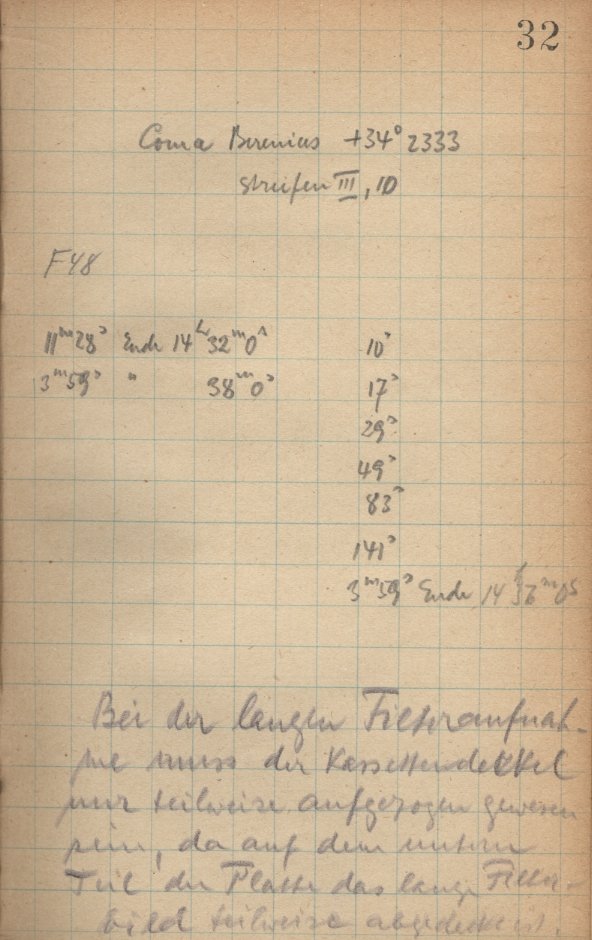 32
Coma Berenices +34° 2333
Streifen III, 10
F48
11ᵐ28ˢ Ende 14ʰ32ᵐ0ˢ 10ˢ
3ᵐ59ˢ " 38ᵐ0ˢ 17ˢ
29ˢ
49ˢ
83ˢ
141ˢ
3ᵐ59ˢ Ende 14ʰ 36ᵐ 0ˢ
Bei der langen Filteraufnah-
me muss der Kassettendeckel
nur teilweise aufgezogen gewesen
sein, da auf dem untern
Teil der Platte das lange Filter-
bild teilweise abgedeckt ist.